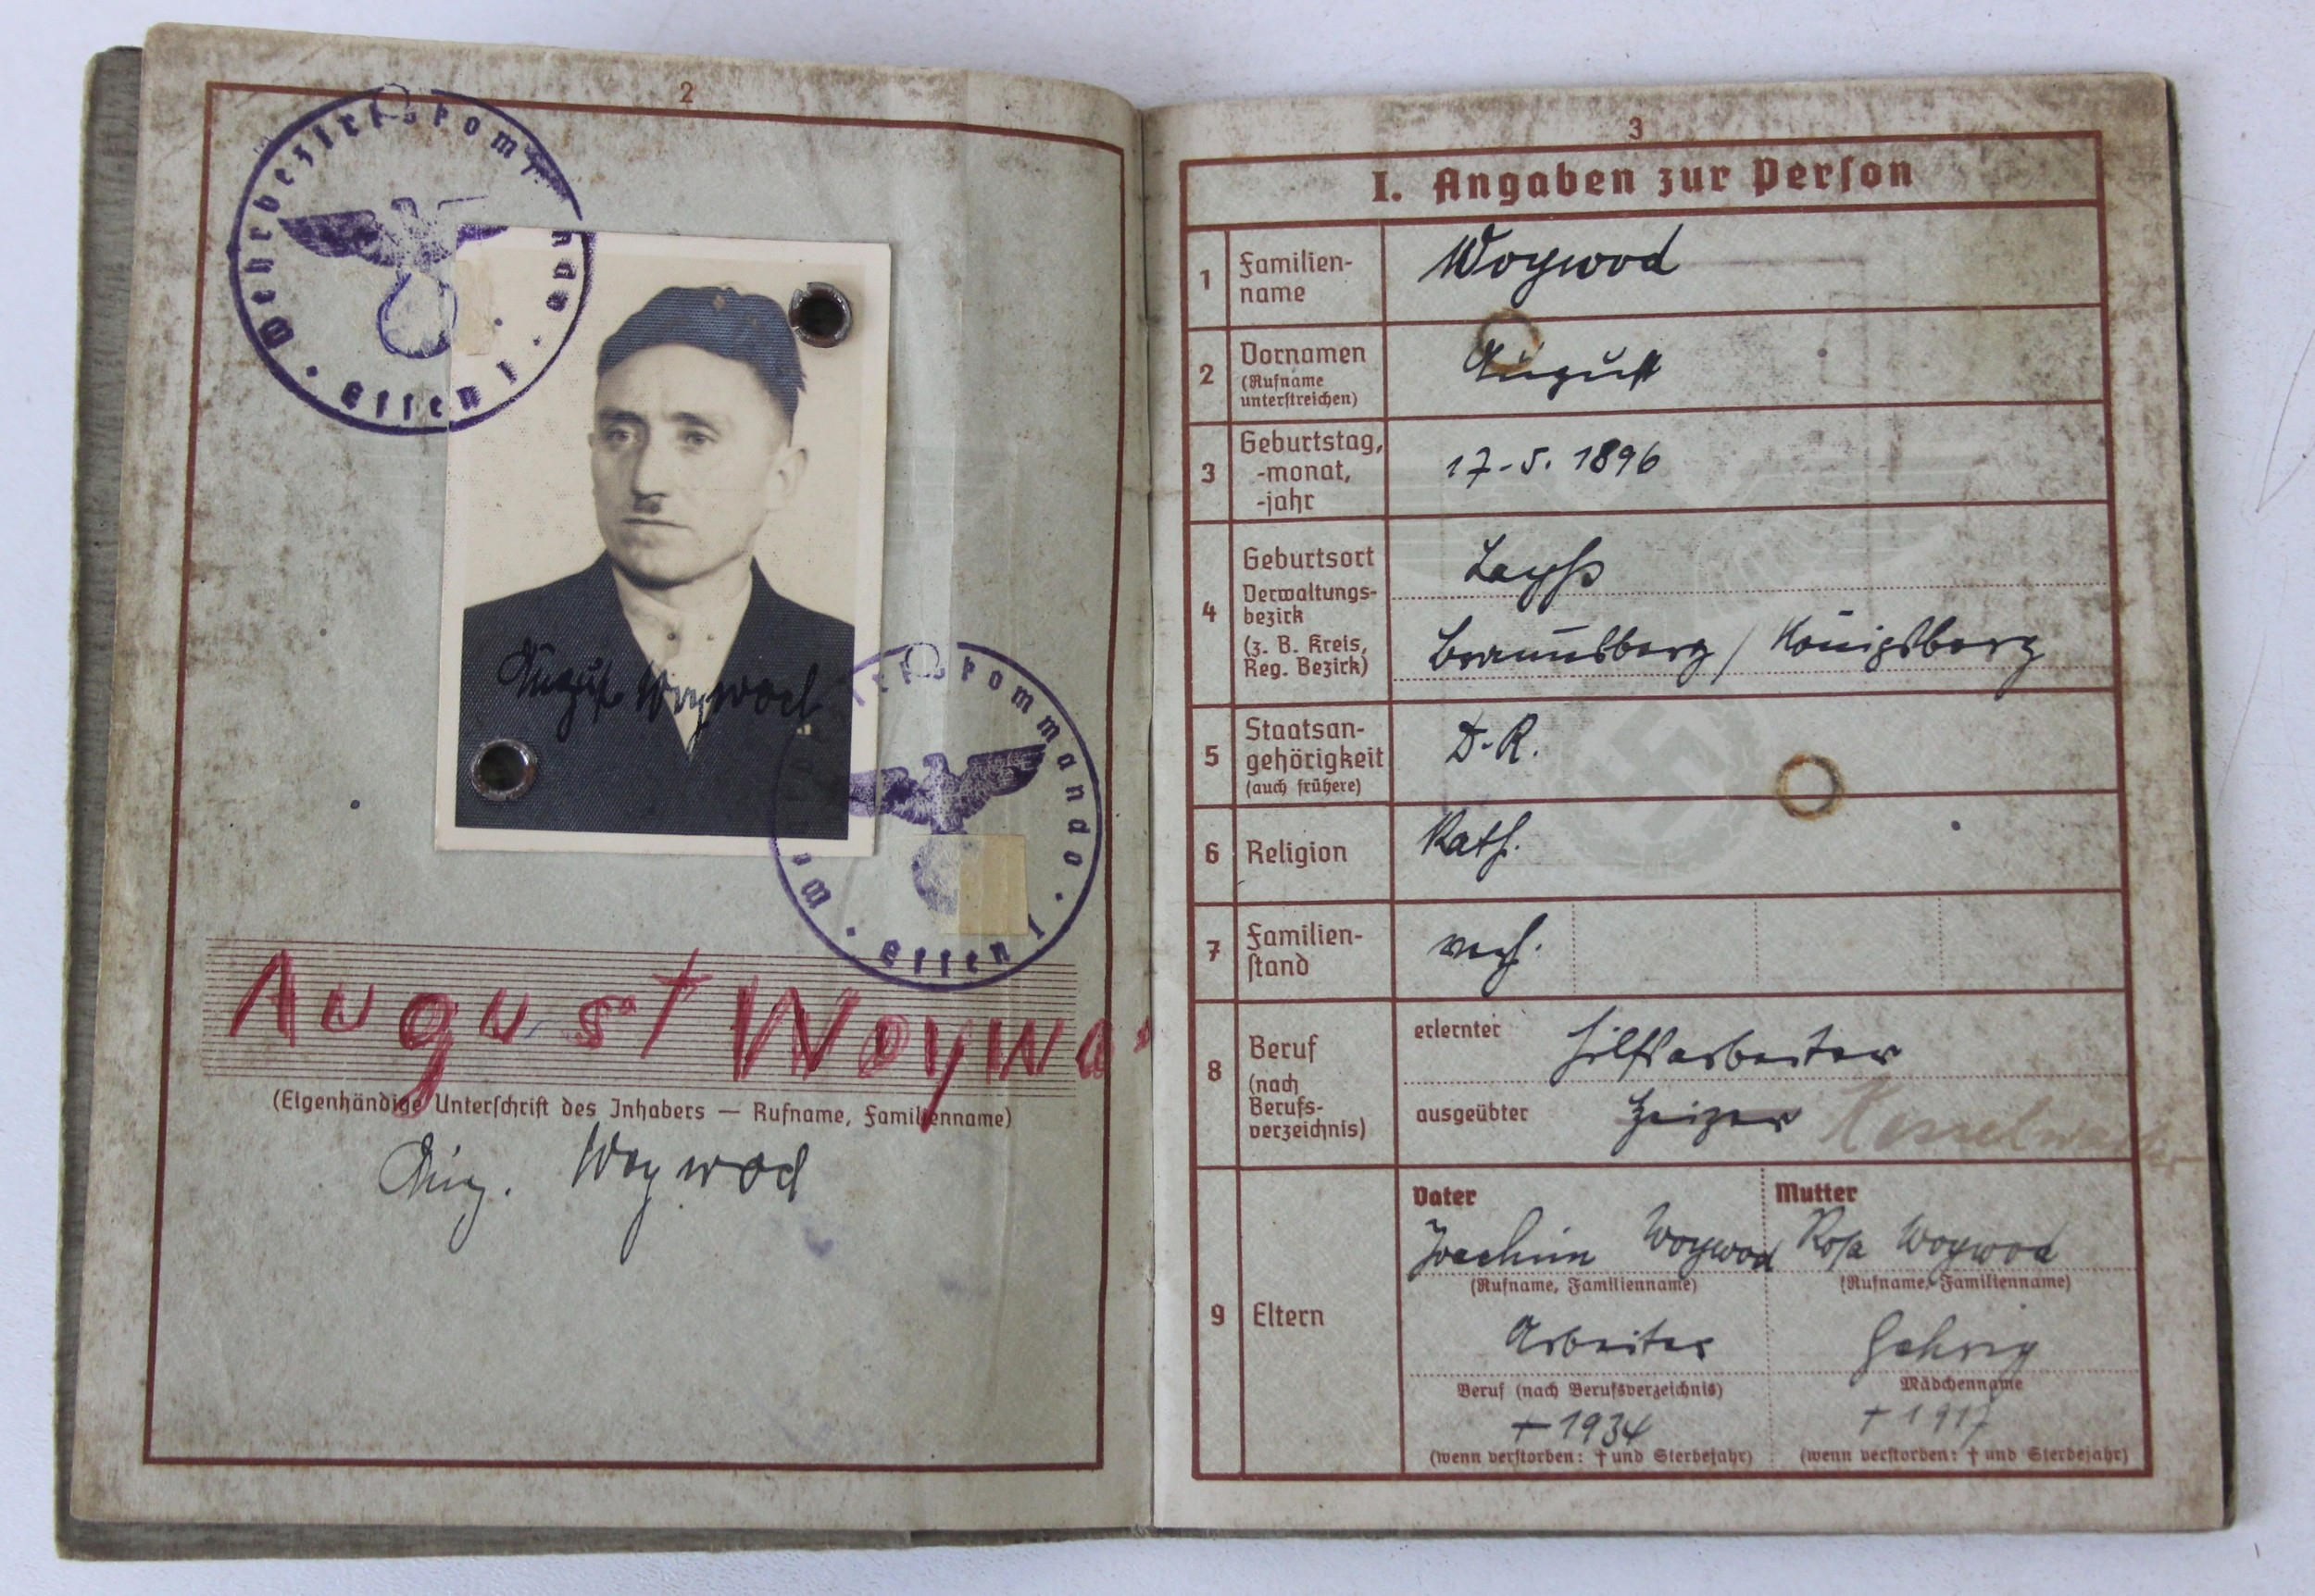 2
Wehrbezirkskommando
Essen I
August Woywod
Wehrbezirkskommando
Essen I
August Woywo
(Eigenhändige Unterschrift des Inhabers — Rufname, Familienname)
Aug. Woywod
3
I. Angaben zur Perſon
1 Familien-
name
Woywod
2 Vornamen
(Rufname
unterſtreichen)
August
3 Geburtstag,
-monat,
-jahr
17.5.1896
4 Geburtsort
Verwaltungs-
bezirk
(z. B. Kreis,
Reg. Bezirk)
Layß
Braunsberg / Königsberg
5 Staatsan-
gehörigkeit
(auch frühere)
D.R.
6 Religion
Kath.
7 Familien-
ſtand
verh.
8 Beruf
(nach
Berufs-
verzeichnis)
erlernter Hilfsarbeiter
ausgeübter Heizer Kesselwärter
9 Eltern
Vater
Joachim Woywod
(Rufname, Familienname)
Arbeiter
Beruf (nach Berufsverzeichnis)
† 1934
(wenn verſtorben: † und Sterbejahr)
Mutter
Rosa Woywod
(Rufname, Familienname)
Gehrig
Mädchenname
† 1917
(wenn verſtorben: † und Sterbejahr)